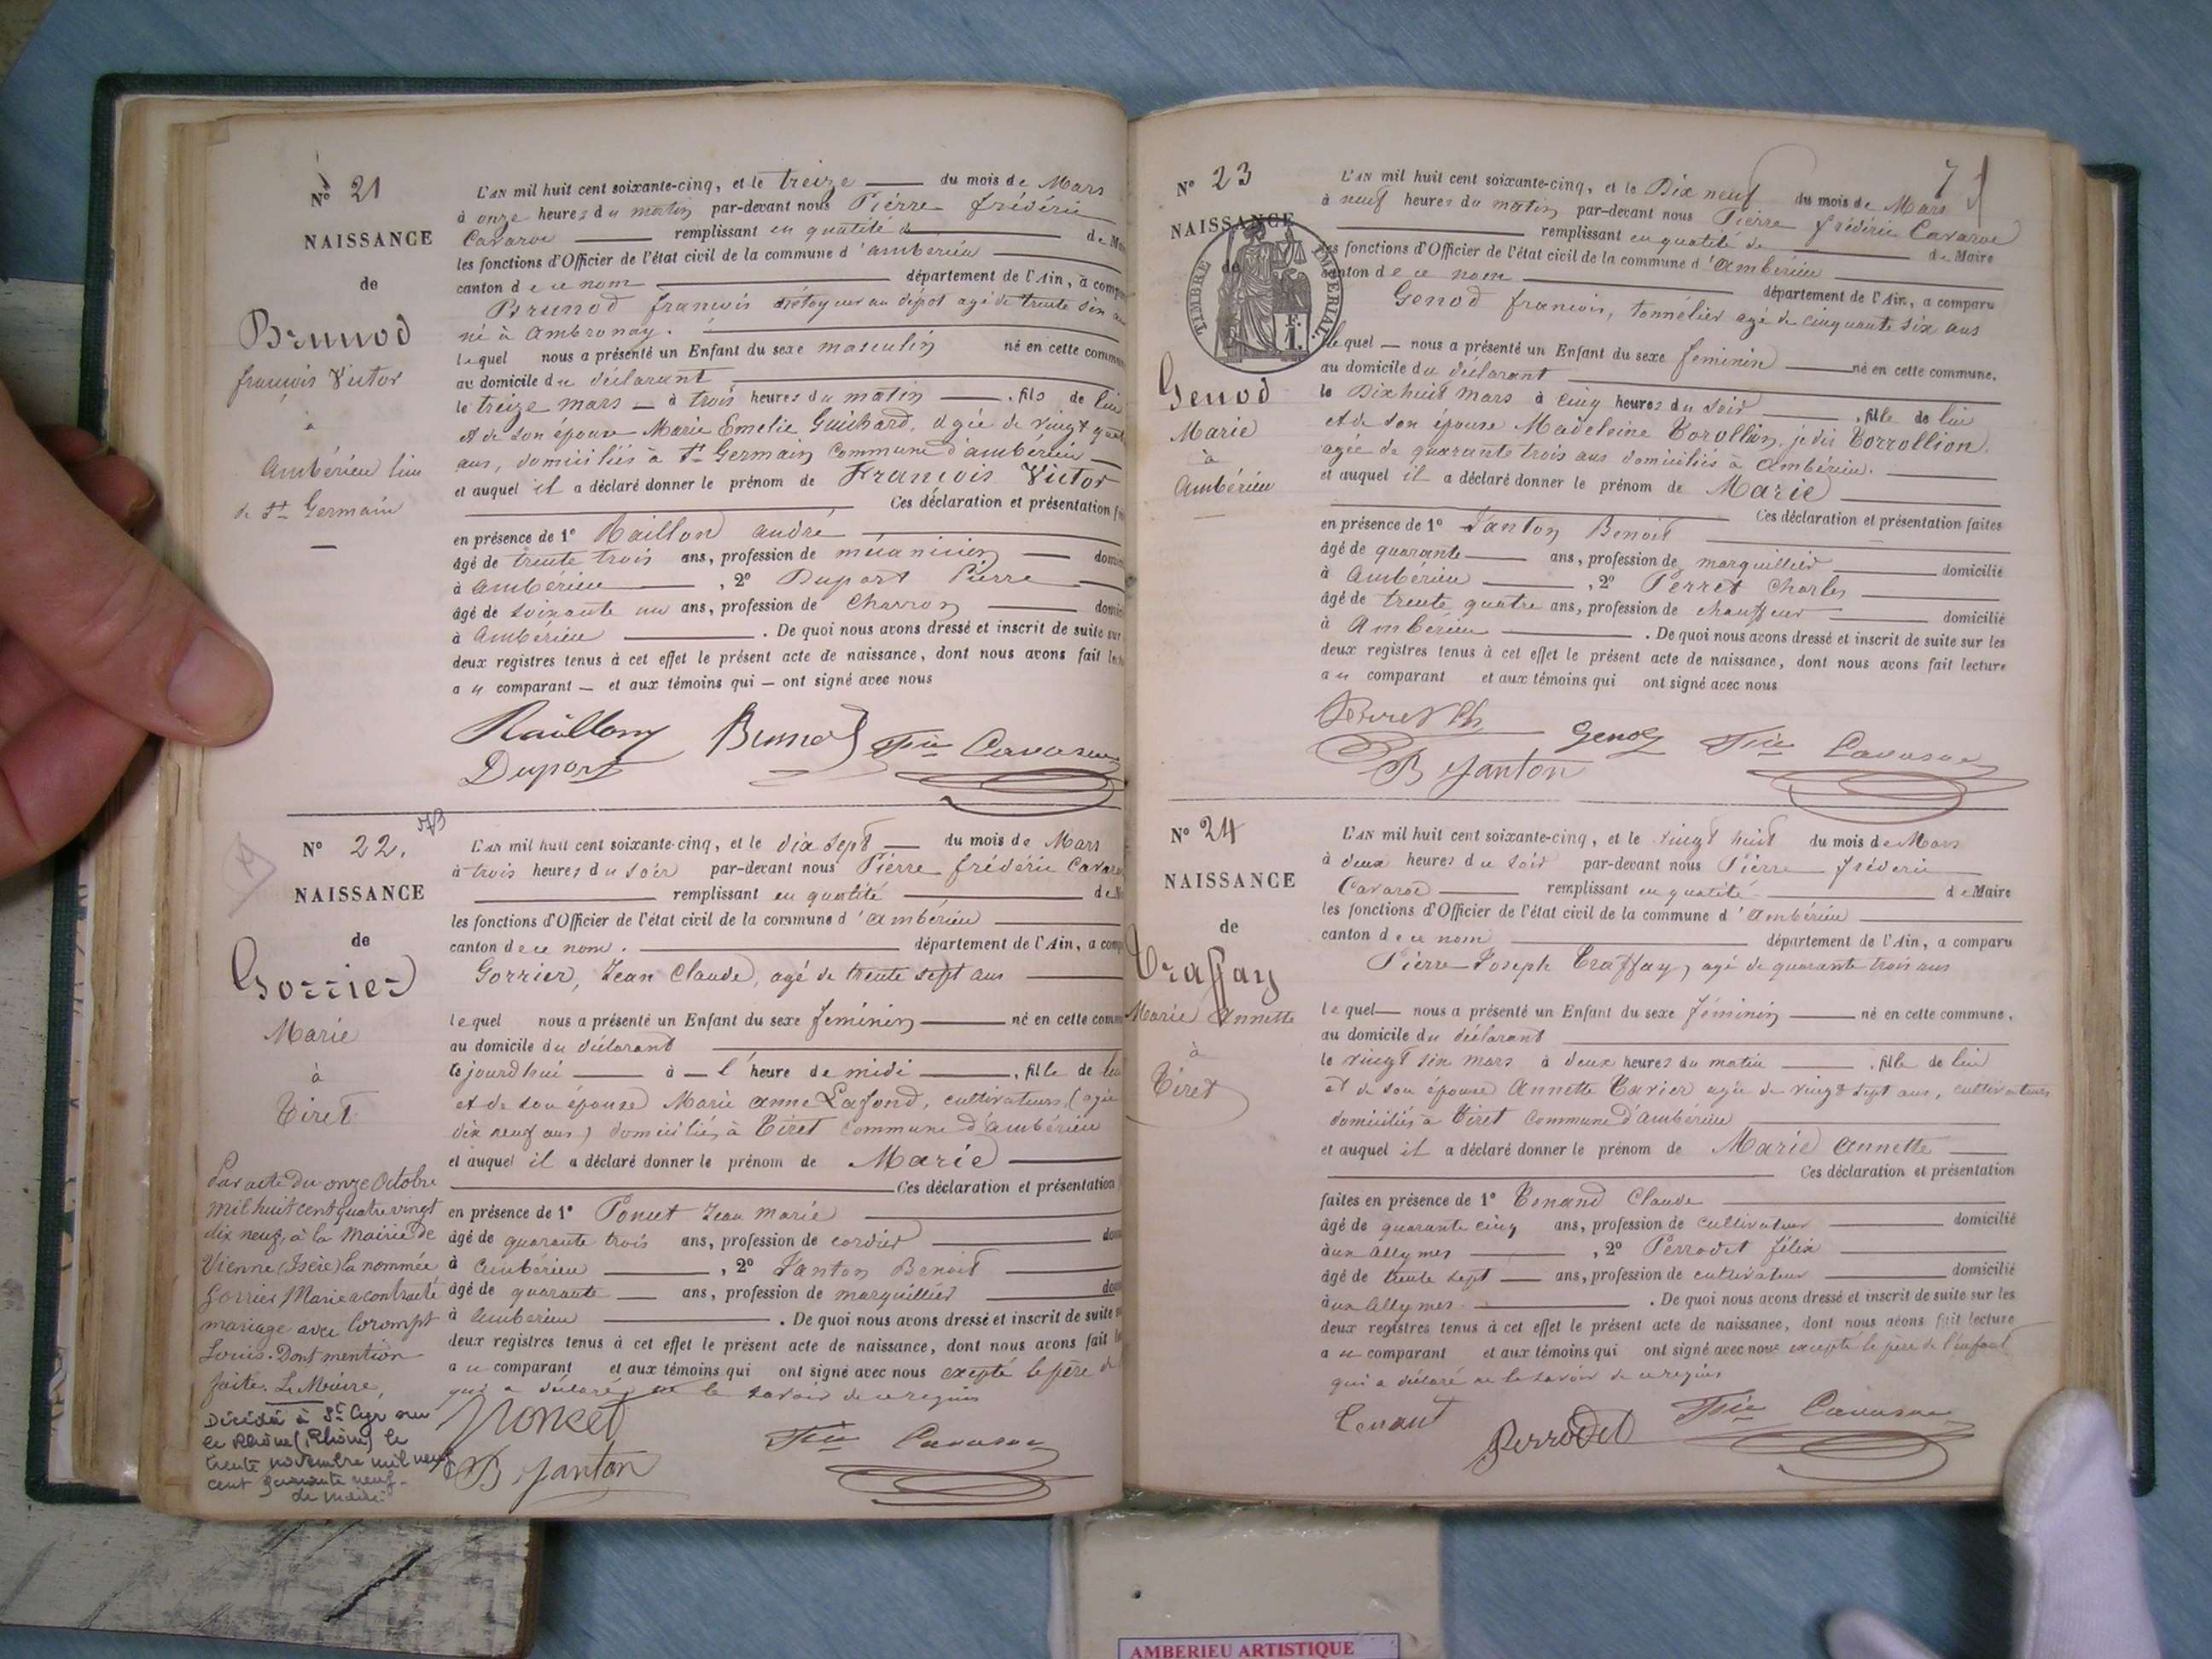 N° 21
NAISSANCE
de
Brunod
françois Victor
à
Ambérieu lieu
de St Germain
L'AN mil huit cent soixante-cinq, et le treize du mois de Mars
à onze heures du matin par-devant nous Pierre frédéric
Cavaroc remplissant en qualité d de M
les fonctions d'Officier de l'état civil de la commune d'ambérieu
canton de ce nom département de l'Ain, a comp
Brunod francois au dépot agé de trente six
né à Ambronay.
lequel nous a présenté un Enfant du sexe masculin né en cette commun
au domicile du déclarant
le treize mars à trois heures du matin , fils de lui
et de son épouse Marie Emelie Guichard, agée de vingt quat
ans, domiciliés à St Germain Commune d'ambérieu
et auquel il a déclaré donner le prénom de Francois Victor
Ces déclaration et présentation f
en présence de 1° Raillon andré
âgé de trente trois ans, profession de mécanicien domi
à Ambérieu , 2° Duport Pierre
âgé de soixante un ans, profession de Charron domi
à Ambérieu . De quoi nous avons dressé et inscrit de suite sur
deux registres tenus à cet effet le présent acte de naissance, dont nous avons fait lec
au comparant et aux témoins qui ont signé avec nous
Raillon Brunod Fric Cavaroc
Duport
N° 22.
NAISSANCE
de
Gorrier
Marie
à
Tiret
Par acte du onze Octobre
mil huit cent quatre vingt
dix neuf, à la Mairie de
Vienne (Isère) la nommée
Gorrier Marie a contracté
mariage avec Corompt
Louis. Dont mention
faite. Le Maire,
Décédée à St Cyr sur
le Rhône (Rhône) le
trente novembre mil neuf
cent quarante neuf.
Le Maire
L'AN mil huit cent soixante-cinq, et le dix sept du mois de Mars
à trois heures du soir par-devant nous Pierre frédéric Cavaro
remplissant en qualité de M
les fonctions d'Officier de l'état civil de la commune d'ambérieu
canton de ce nom. département de l'Ain, a comp
Gorrier, Jean Claude, agé de trente sept ans
lequel nous a présenté un Enfant du sexe féminin né en cette comm
au domicile du déclarant
cejourdhui à l'heure de midi , fille de lui
et de son épouse Marie anne Lafond, cultivateurs, (agée
dix neuf ans) domiciliés à Tiret Commune d'ambérieu
et auquel il a déclaré donner le prénom de Marie
Ces déclaration et présentation
en présence de 1° Poncet Jean Marie
âgé de quarante trois ans, profession de cordier dom
à ambérieu , 2° Janton Benoit
âgé de quarante ans, profession de marguillier dom
à Ambérieu . De quoi nous avons dressé et inscrit de suite s
deux registres tenus à cet effet le présent acte de naissance, dont nous avons fait
au comparant et aux témoins qui ont signé avec nous excepté le père de
qui a déclaré ne le savoir de ce requis
Poncet
B Janton Fric Cavaroc
7
N° 23
NAISSANCE
de
TIMBRE IMPÉRIAL.
F.
1.
Genod
Marie
à
Ambérieu
L'AN mil huit cent soixante-cinq, et le Dix neuf du mois de Mars
à neuf heures du matin par-devant nous Pierre frédéric Cavaroc
remplissant en qualité de de Maire
des fonctions d'Officier de l'état civil de la commune d'Ambérieu
canton de ce nom département de l'Ain, a comparu
Genod francois, tonnélier agé de cinquante six ans
lequel nous a présenté un Enfant du sexe féminin né en cette commune.
au domicile du déclarant
le Dix huit Mars à cinq heures du soir , fille de lui
et de son épouse Madeleine Torollion, je dis Torrollion
agée de quarante trois ans domiciliés à Ambérieu.
et auquel il a déclaré donner le prénom de Marie
Ces déclaration et présentation faites
en présence de 1° Janton Benoit
âgé de quarante ans, profession de marguillier domicilié
à Ambérieu , 2° Perret Charles
âgé de trente quatre ans, profession de chauffeur domicilié
à Ambérieu . De quoi nous avons dressé et inscrit de suite sur les
deux registres tenus à cet effet le présent acte de naissance, dont nous avons fait lecture
au comparant et aux témoins qui ont signé avec nous
Perret Ch Genod Fric Cavaroc
B Janton
N° 24
NAISSANCE
de
Traffay
Marie Annette
à
Tiret
L'AN mil huit cent soixante-cinq, et le vingt huit du mois de Mars
à deux heures du soir par-devant nous Pierre fréderic
Cavaroc remplissant en qualité de Maire
les fonctions d'Officier de l'état civil de la commune d'Ambérieu
canton de ce nom département de l'Ain, a comparu
Pierre Joseph Traffay, agé de quarante trois ans
lequel nous a présenté un Enfant du sexe féminin né en cette commune.
au domicile du déclarant
le vingt six mars à deux heures du matin , fille de lui
et de son épouse Annette Tavier agée de vingt sept ans, cultivateurs
domiciliés à Tiret Commune d'Ambérieu
et auquel il a déclaré donner le prénom de Marie Annette
Ces déclaration et présentation
faites en présence de 1° Tenand Claude
âgé de quarante cinq ans, profession de cultivateur domicilié
aux allymes , 2° Perrodet félix
âgé de trente sept ans, profession de cultivateur domicilié
aux allymes . De quoi nous avons dressé et inscrit de suite sur les
deux registres tenus à cet effet le présent acte de naissance, dont nous avons fait lecture
au comparant et aux témoins qui ont signé avec nous excepté le père de l'enfant
qui a déclaré ne le savoir de ce requis
Tenant Perrodet Fric Cavaroc
AMBERIEU ARTISTIQUE